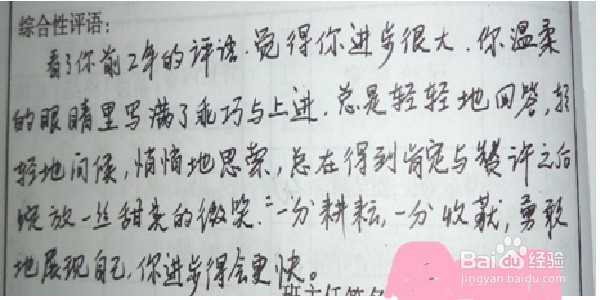 综合性评语:
看了你前2年的评语.觉得你进步很大.你温柔
的眼睛里写满了乖巧与上进.总是轻轻地回答,轻
轻地问候,悄悄地思索,总在得到肯定与赞许之后
绽放一丝甜美的微笑."一分耕耘,一分收获,勇敢
地展现自己,你进步得会更快。
班主任签名
Bai百度经验
jingyan.baidu.com